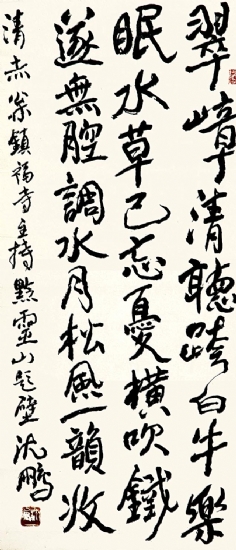 翠嶂清聽跨白牛樂
眠水草已忘憂橫吹鐵
篴無腔調水月松風一韻收
清赤鎮福寺主持點靈山題壁 沈鵬